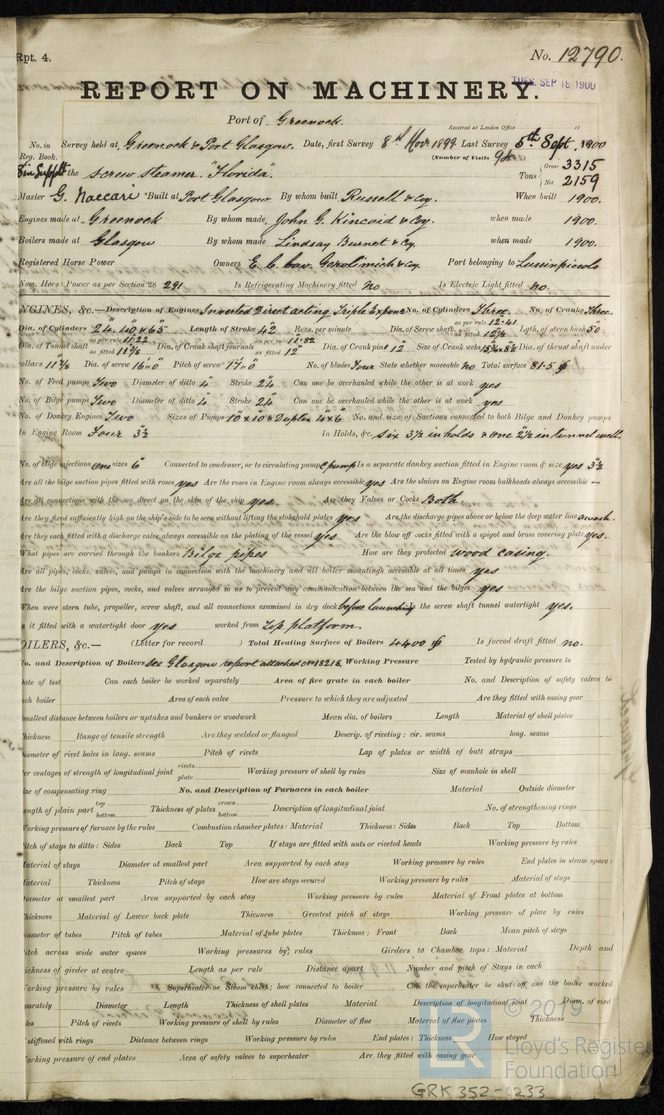 Rpt. 4. No. 12790.
REPORT ON MACHINERY.
TUES. SEP 18 1900
Port of Greenock
Received at London Office 18
No. in Survey held at Greenock & Port Glasgow. Date, first Survey 8th Novr 1899 Last Survey 5th Sept. 1900
Reg. Book. (Number of Visits
the Screw Steamer "Florida" Tons Gross 3315 Net 2159
Master G. Naccari Built at Port Glasgow By whom built Russell & Coy. When built 1900.
Engines made at Greenock By whom made John G. Kincaid & Coy. when made 1900.
Boilers made at Glasgow By whom made Lindsay Burnet & Coy. when made 1900.
Registered Horse Power Owners E. C. Cav. Gerolimich & Coy. Port belonging to Lussinpiccolo
Nom. Horse Power as per Section 28 291 Is Refrigerating Machinery fitted no Is Electric Light fitted no.
NGINES, &c.— Description of Engines Inverted Direct acting Triple Expans No. of Cylinders Three No. of Cranks Three
Dia. of Cylinders 24" 40" & 65" Length of Stroke 42 Revs. per minute Dia. of Screw shaft as per rule 12.41 as fitted 12½ Lgth. of stern bush 50
Dia. of Tunnel shaft as per rule 11.22 as fitted Dia. of Crank shaft journals as per rule 11.82 as fitted 12" Dia. of Crank pins 12" Size of Crank webs Dia. of thrust shaft under
collars Dia. of screw 16'0" Pitch of screw 17'0" No. of blades Four State whether moveable no Total surface 81.5
No. of Feed pumps Two Diameter of ditto 4" Stroke 24" Can one be overhauled while the other is at work yes
No. of Bilge pumps Two Diameter of ditto 4" Stroke 24" Can one be overhauled while the other is at work yes
No. of Donkey Engines Two Sizes of Pumps 10" x 10" & Duplex 4 x 6" No. and size of Suctions connected to both Bilge and Donkey pumps
In Engine Room Four 3½ In Holds, &c. six 3½ in holds & one 2½ in tunnel well.
No. of bilge injections one sizes 6" Connected to condenser, or to circulating pump C pump Is a separate donkey suction fitted in Engine room & size yes 3½
Are all the bilge suction pipes fitted with roses yes Are the roses in Engine room always accessible yes Are the sluices on Engine room bulkheads always accessible —
Are all connections with the sea direct on the skin of the ship yes. Are they Valves or Cocks Both.
Are they fixed sufficiently high on the ship's side to be seen without lifting the stokehold plates yes Are the discharge pipes above or below the deep water line awash.
Are they each fitted with a discharge valve always accessible on the plating of the vessel yes Are the blow off cocks fitted with a spigot and brass covering plate yes.
What pipes are carried through the bunkers Bilge pipes How are they protected wood casing.
Are all pipes, cocks, valves, and pumps in connection with the machinery and all boiler mountings accessible at all times yes
Are the bilge suction pipes, cocks, and valves arranged so as to prevent any communication between the sea and the bilges yes
When were stern tube, propeller, screw shaft, and all connections examined in dry dock before launching Is the screw shaft tunnel watertight yes.
Is it fitted with a watertight door yes worked from Top platform.
OILERS, &c.— (Letter for record ) Total Heating Surface of Boilers 4400 Is forced draft fitted no.
No. and Description of Boilers See Glasgow report attached No 18218 Working Pressure Tested by hydraulic pressure to
Date of test Can each boiler be worked separately Area of fire grate in each boiler No. and Description of safety valves to
each boiler Area of each valve Pressure to which they are adjusted Are they fitted with easing gear
Smallest distance between boilers or uptakes and bunkers or woodwork Mean dia. of boilers Length Material of shell plates
Thickness Range of tensile strength Are they welded or flanged Descrip. of riveting: cir. seams long. seams
Diameter of rivet holes in long. seams Pitch of rivets Lap of plates or width of butt straps
Per centages of strength of longitudinal joint rivets plate Working pressure of shell by rules Size of manhole in shell
Size of compensating ring No. and Description of Furnaces in each boiler Material Outside diameter
Length of plain part top bottom Thickness of plates crown bottom Description of longitudinal joint No. of strengthening rings
Working pressure of furnace by the rules Combustion chamber plates: Material Thickness: Sides Back Top Bottom
Pitch of stays to ditto: Sides Back Top If stays are fitted with nuts or riveted heads Working pressure by rules
Material of stays Diameter at smallest part Area supported by each stay Working pressure by rules End plates in steam space:
Material Thickness Pitch of stays How are stays secured Working pressure by rules Material of stays
Diameter at smallest part Area supported by each stay Working pressure by rules Material of Front plates at bottom
Thickness Material of Lower back plate Thickness Greatest pitch of stays Working pressure of plate by rules
Diameter of tubes Pitch of tubes Material of tube plates Thickness: Front Back Mean pitch of stays
Pitch across wide water spaces Working pressures by rules Girders to Chamber tops: Material Depth and
thickness of girder at centre Length as per rule Distance apart Number and pitch of Stays in each
Working pressure by rules Superheater or Steam chest; how connected to boiler Can the superheater be shut off and the boiler worked
separately Diameter Length Thickness of shell plates Material Description of longitudinal joint Diam. of rivet
holes Pitch of rivets Working pressure of shell by rules Diameter of flue Material of flue plates Thickness
If stiffened with rings Distance between rings Working pressure by rules End plates: Thickness How stayed
Working pressure of end plates Area of safety valves to superheater Are they fitted with easing gear
LR
© 2019
Lloyd's Register
Foundation
GRK352-0233